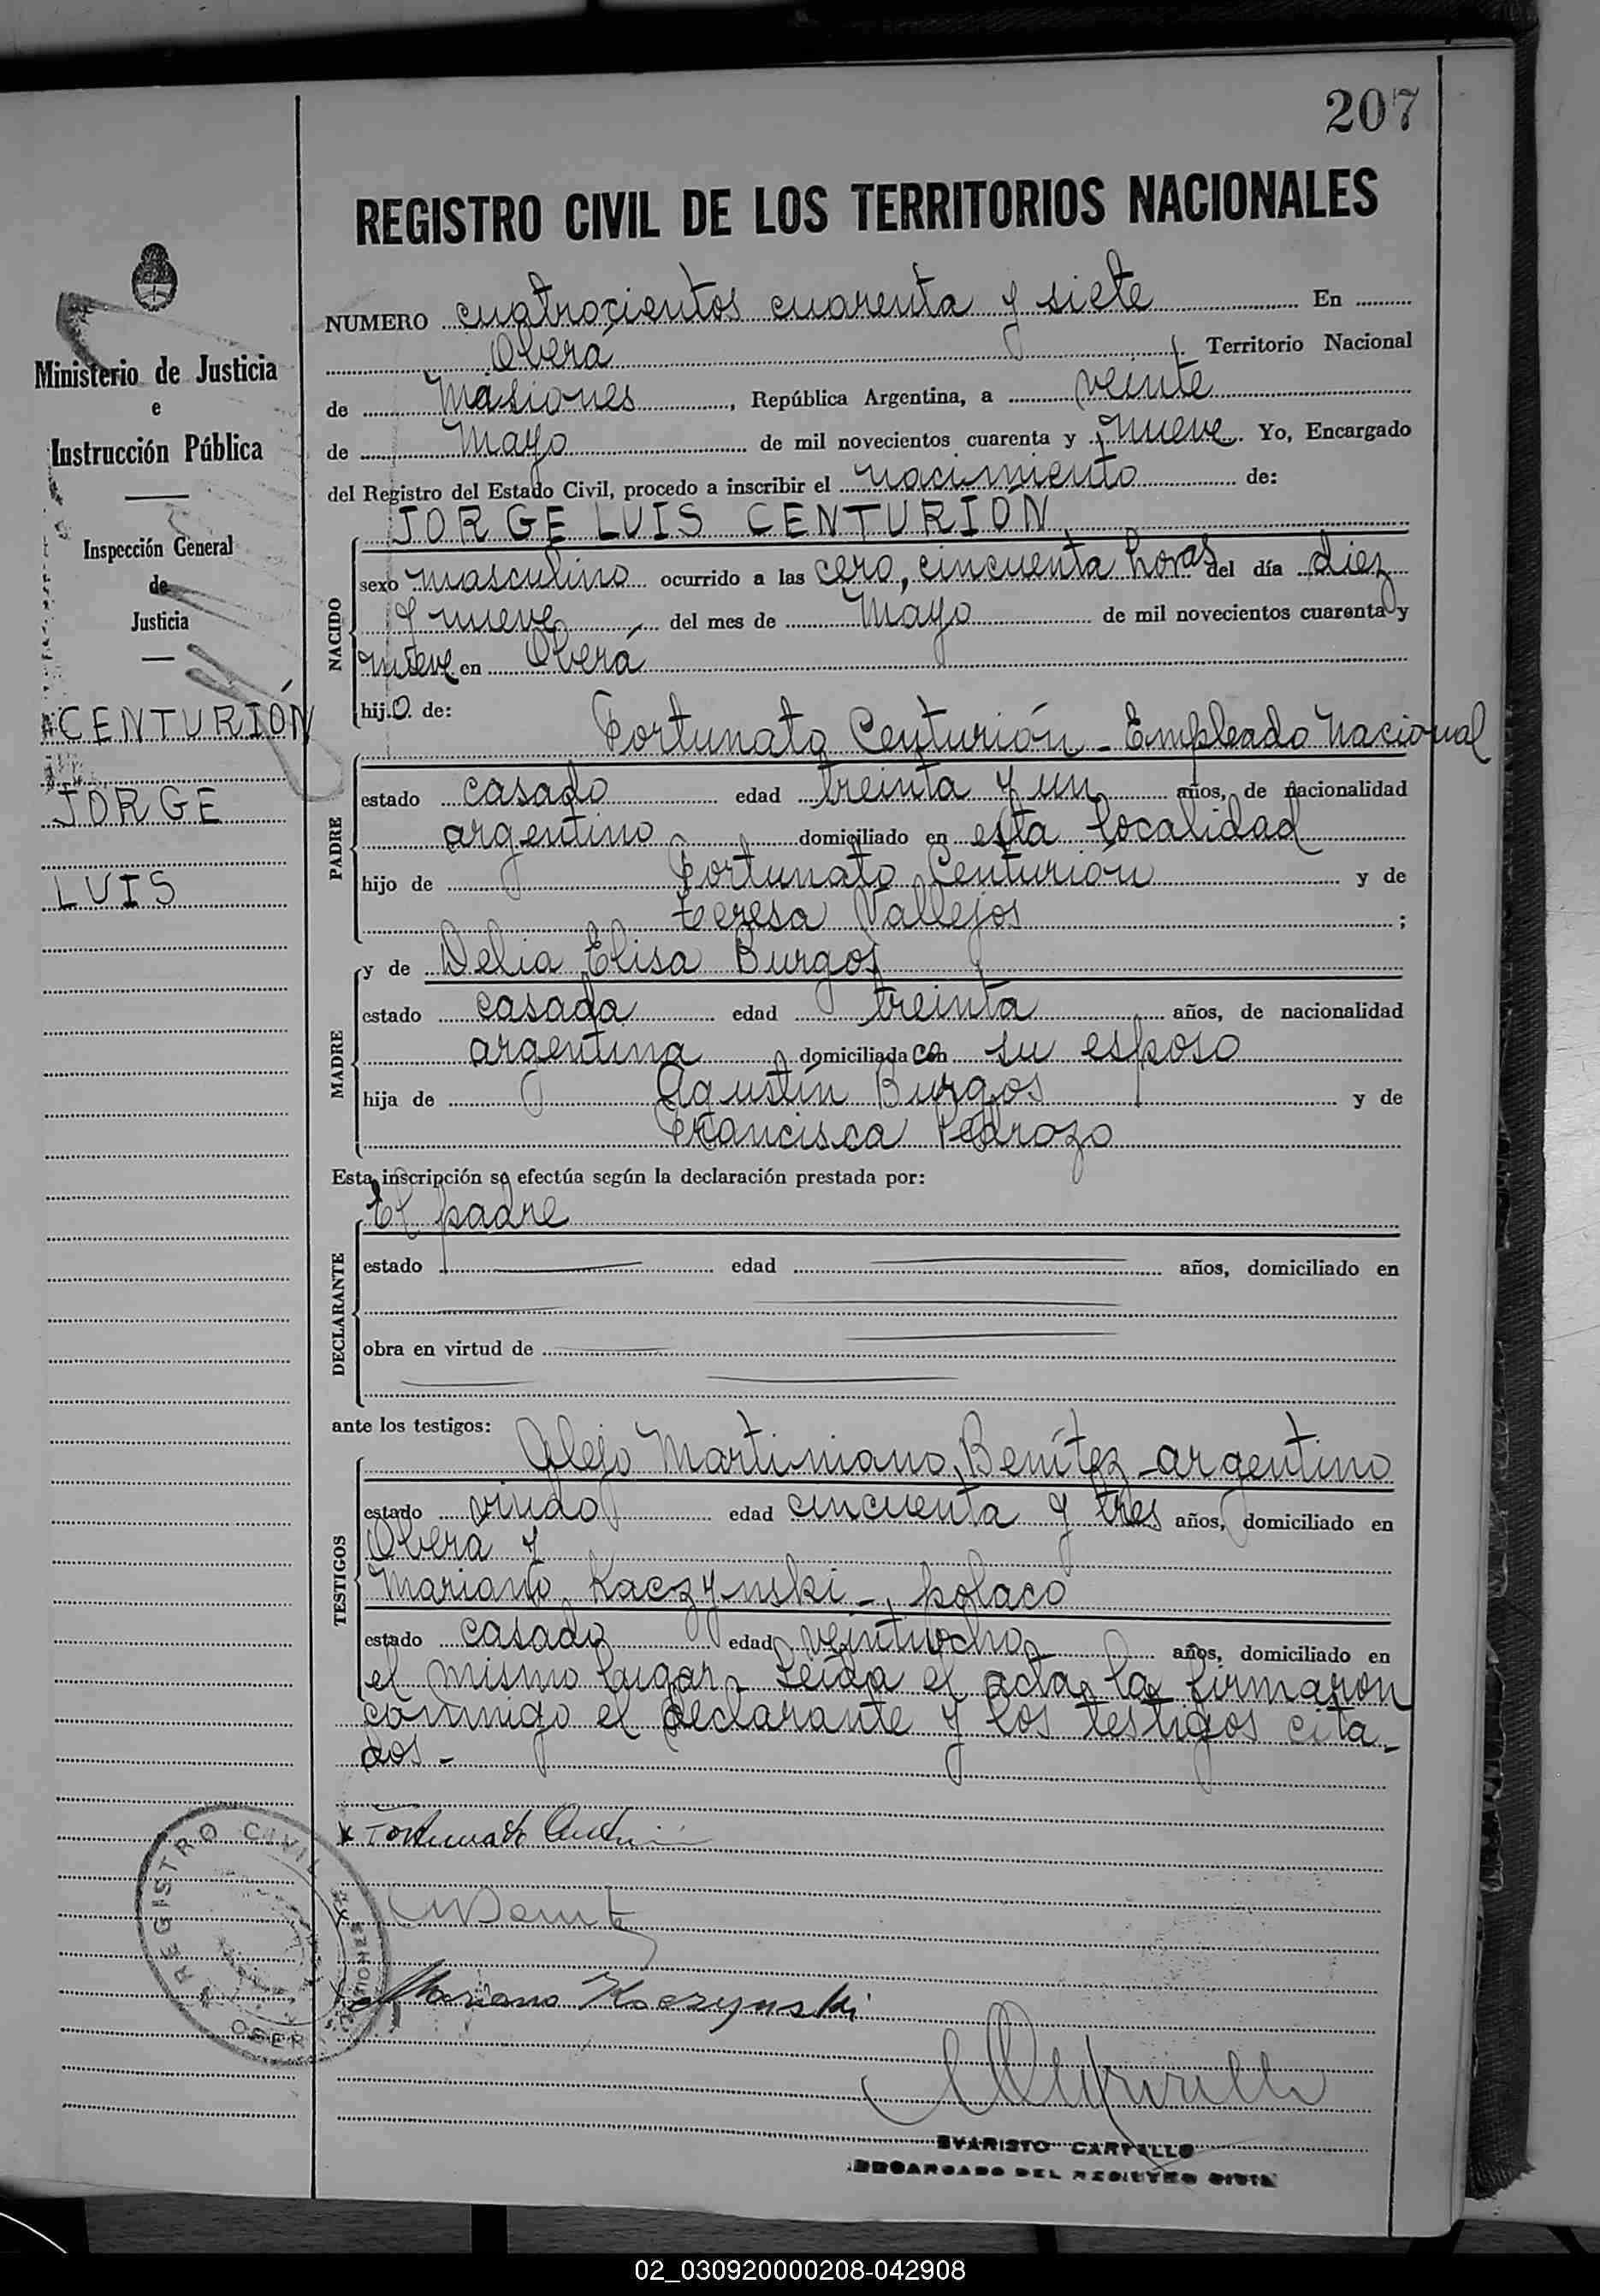 207
REGISTRO CIVIL DE LOS TERRITORIOS NACIONALES
Ministerio de Justicia
e
Instrucción Pública
Inspección General
de
Justicia
CENTURIÓN
JORGE
LUIS
NUMERO cuatrocientos cuarenta y siete En
Oberá Territorio Nacional
de Misiones, República Argentina, a veinte
de Mayo de mil novecientos cuarenta y nueve. Yo, Encargado
del Registro del Estado Civil, procedo a inscribir el nacimiento de:
JORGE LUIS CENTURIÓN
NACIDO
sexo masculino ocurrido a las cero, cincuenta horas del día diez
y nueve del mes de Mayo de mil novecientos cuarenta y
nueve en Oberá
hijo de:
Fortunato Centurión - Empleado Nacional
PADRE
estado casado edad treinta y un años, de nacionalidad
argentino domiciliado en esta localidad
hijo de Fortunato Centurión y de
teresa Vallejos ;
y de Delia Elisa Burgos
MADRE
estado casada edad treinta años, de nacionalidad
argentina domiciliada con su esposo
hija de Agustín Burgos y de
Francisca Pedrozo
Esta inscripción se efectúa según la declaración prestada por:
El padre
DECLARANTE
estado edad años, domiciliado en
obra en virtud de
ante los testigos:
Alejo Martiniano Benítez - argentino
TESTIGOS
estado viudo edad cincuenta y tres años, domiciliado en
Oberá y
Mariano Kaczynski -, polaco
estado casado edad veintiocho años, domiciliado en
el mismo lugar - Leída el acta, la firmaron
conmigo el declarante y los testigos cita-
dos -
Fortunato Centurión
Benítez
Mariano Kaczynski
REGISTRO CIVIL
OBERÁ
EVARISTO CARVALLO
ENCARGADO DEL REGISTRO CIVIL
02_030920000208-042908